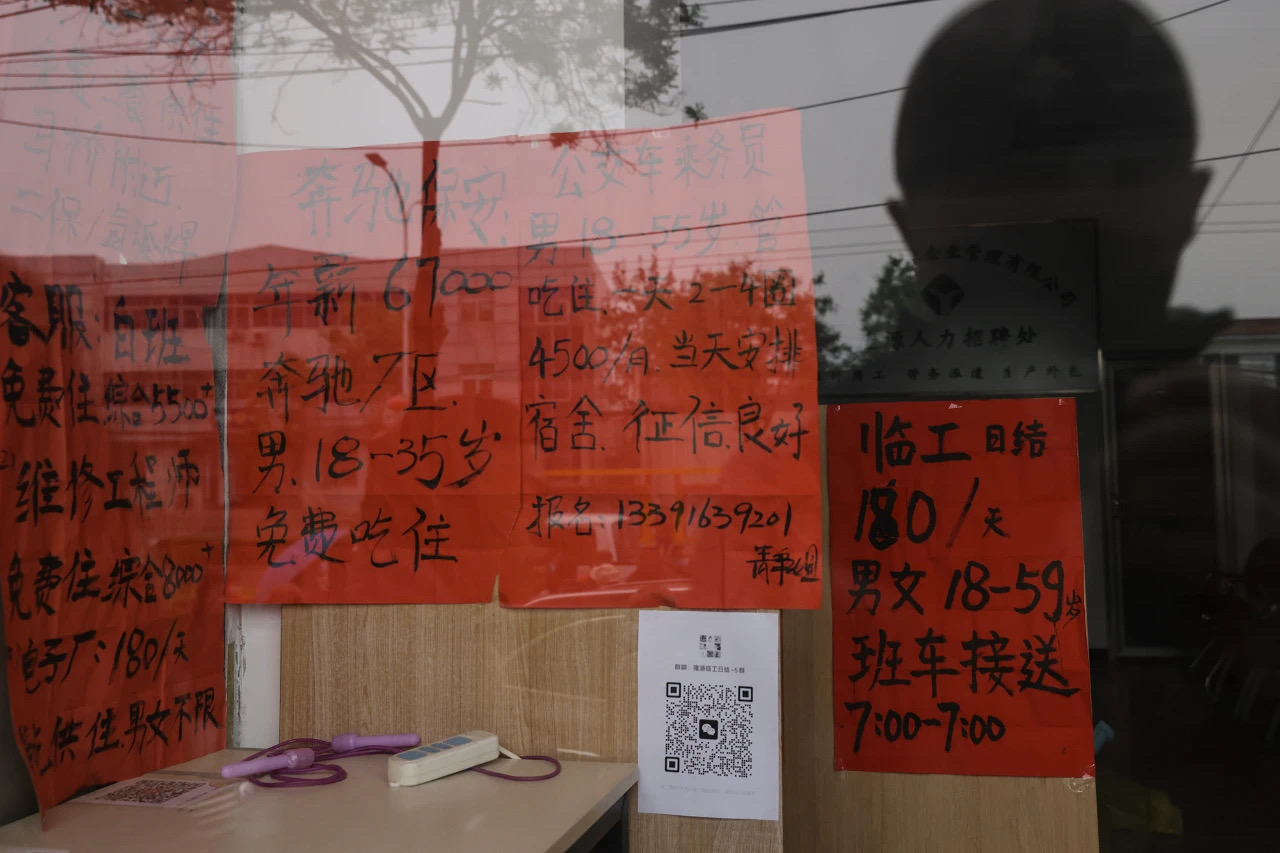 马桥附近
二保/氩弧焊
客服:白班
免费住 综合5500+
维修工程师
免费住 综合8000+
电子厂:180/天
供住.男女不限
奔驰保安:
年薪67000
奔驰厂区.
男.18-35岁
免费吃住
公交车乘务员
男18-55岁.管
吃住.一天2-4圈
4500/月.当天安排
宿舍.征信良好
报名:13391639201
企业管理有限公司
源人力招聘处
劳务派遣 生产外包
临工日结
180/天
男女18-59岁
班车接送
7:00-7:00